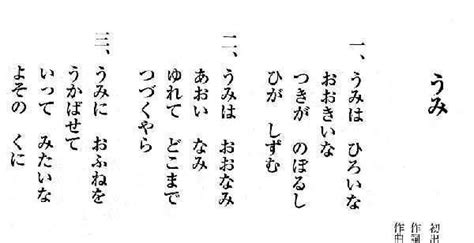 うみ
初出
作詞
作曲
一、うみは ひろいな
おおきいな
つきが のぼるし
ひが しずむ
二、うみは おおなみ
あおい なみ
ゆれて どこまで
つづくやら
三、うみに おふねを
うかばせて
いって みたいな
よその くに